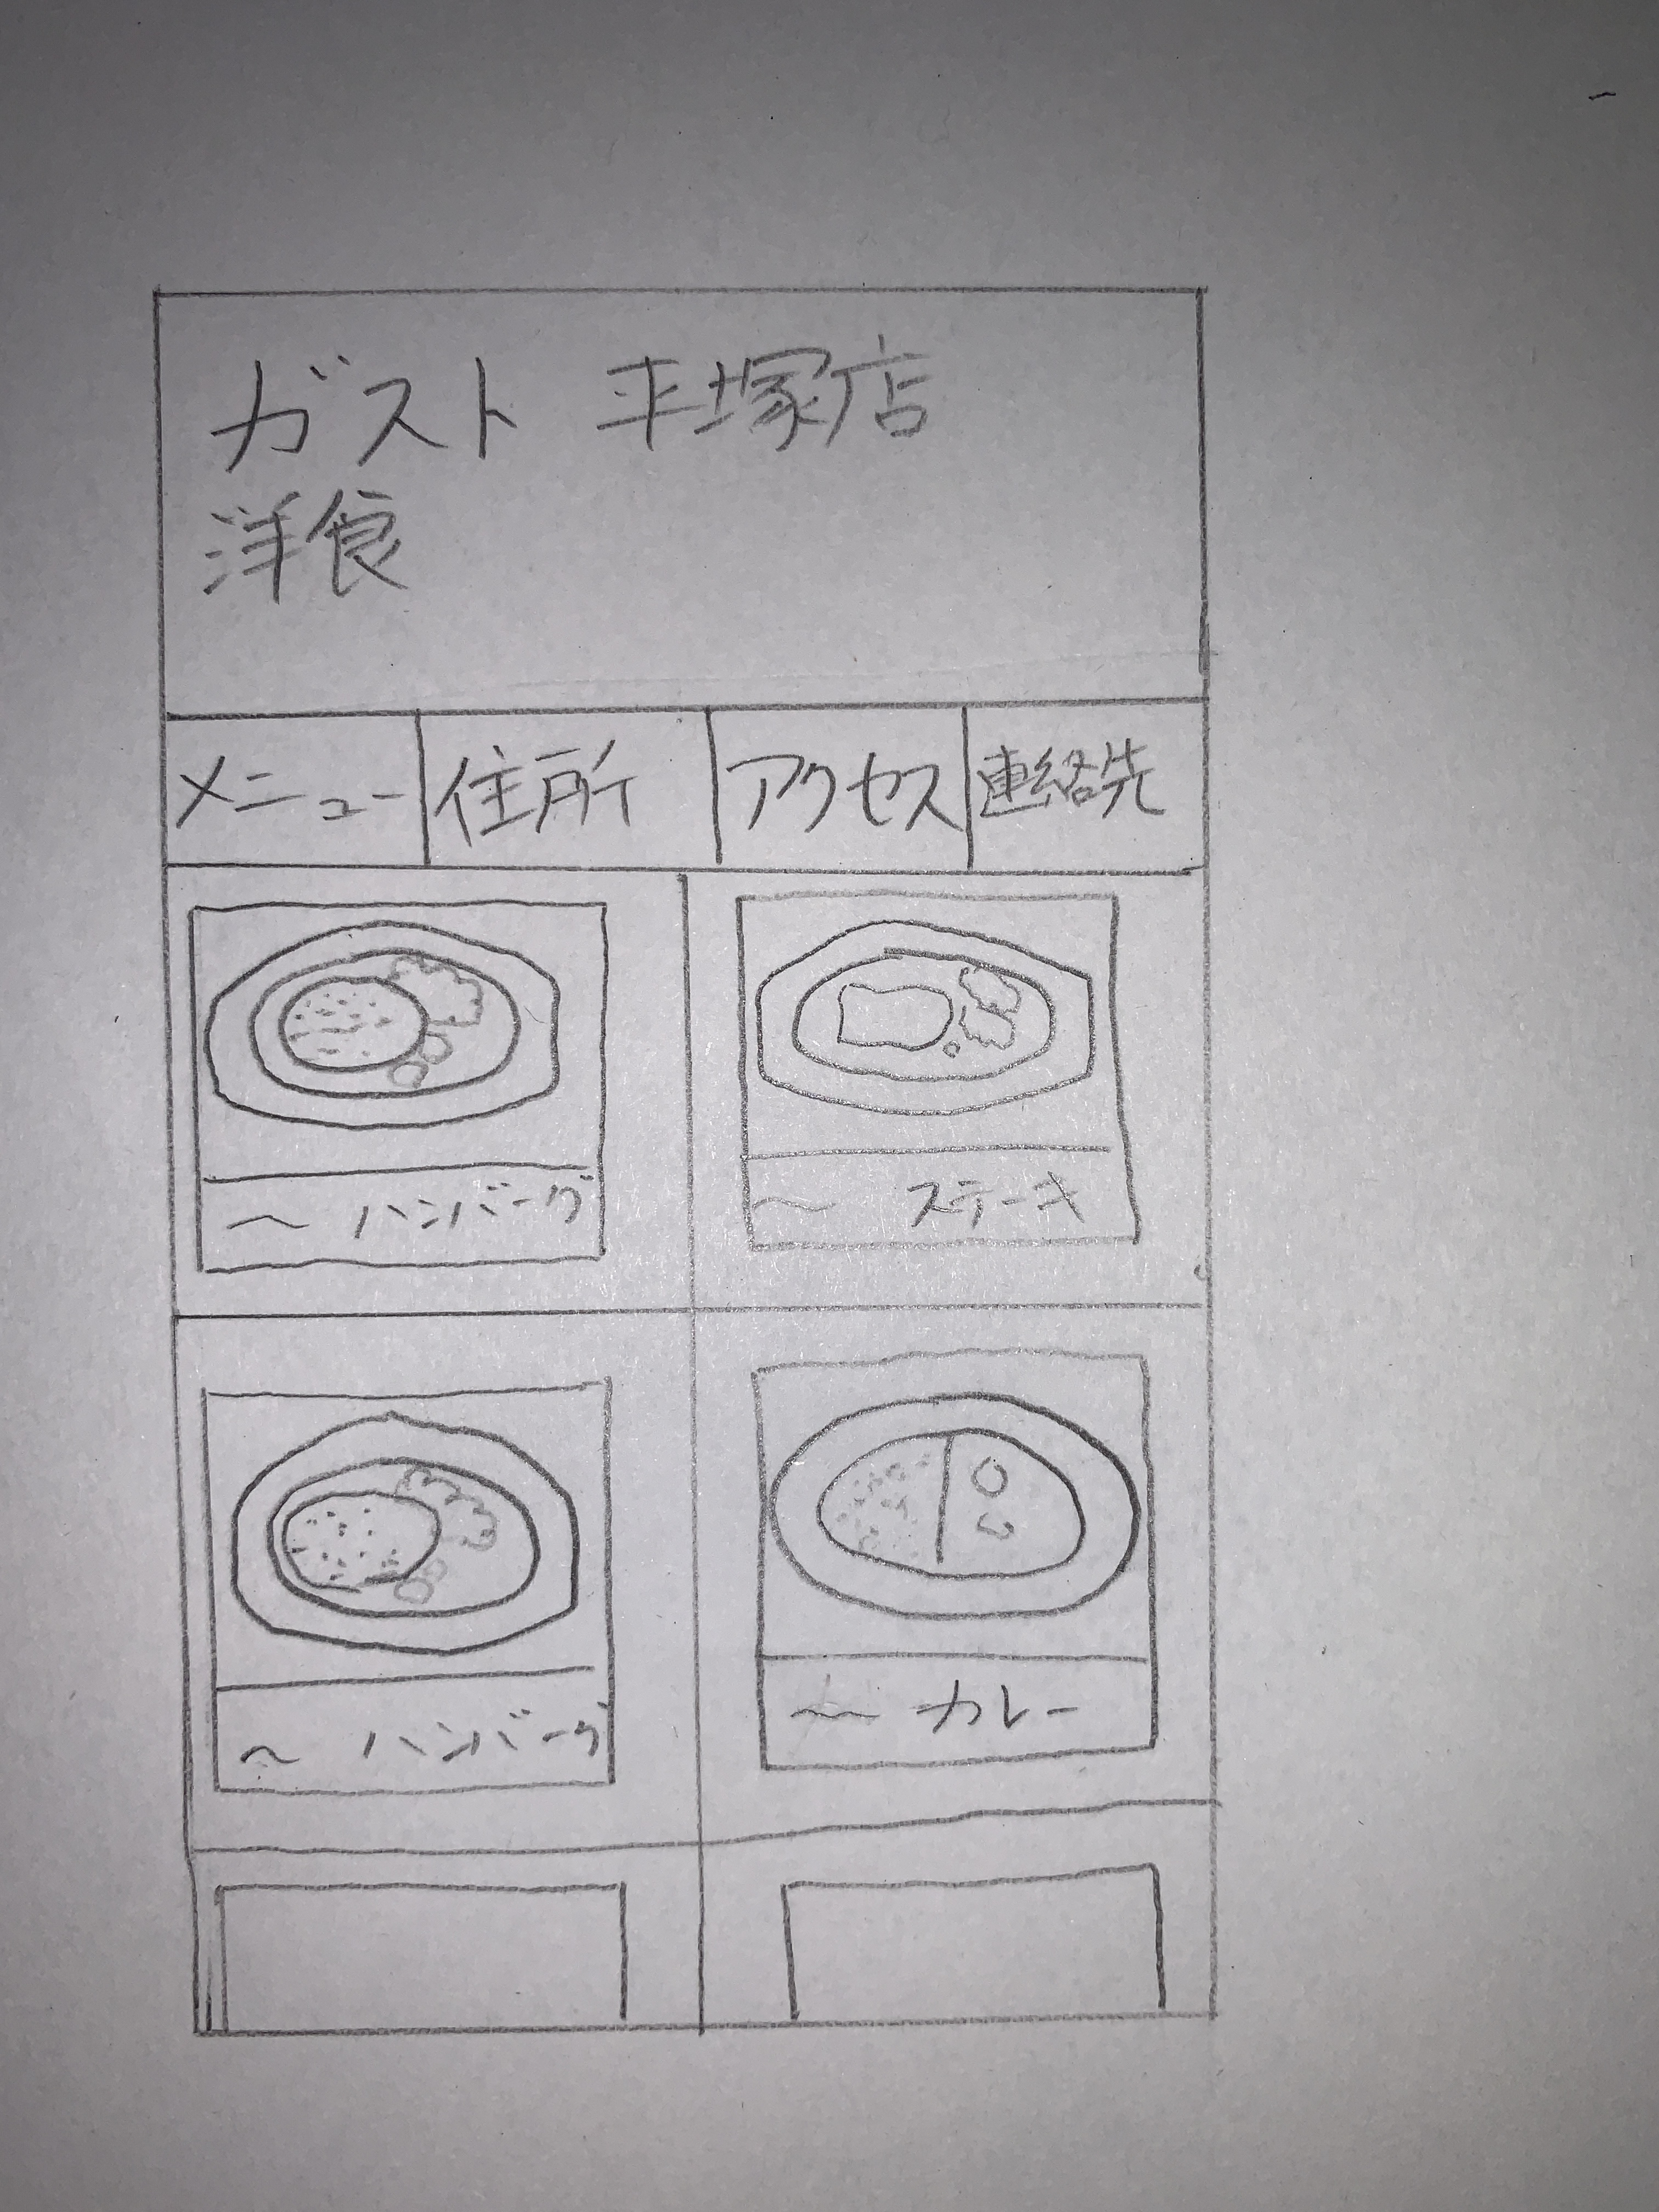 ガスト 平塚店
洋食
メニュー 住所 アクセス 連絡先
〜 ハンバーグ
〜 ステーキ
〜 ハンバーグ
〜 カレー